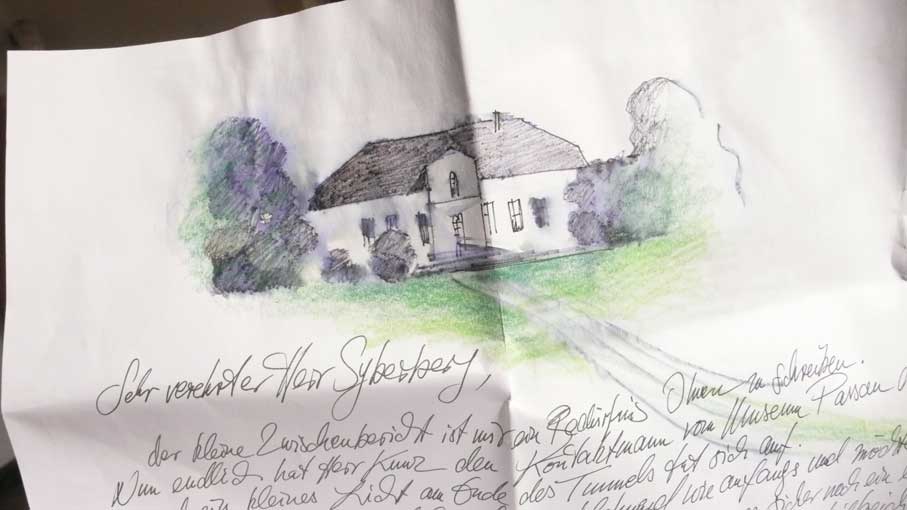 Sehr verehrter Herr Syberberg,
der kleine Zwischenbericht ist mir ein Bedürfnis Ihnen zu schreiben.
Nun endlich hat Herr Kunz den Kontaktmann vom Museum Passau
kleines Licht am Ende des Tunnels tut sich auf.
wie anfangs und möcht